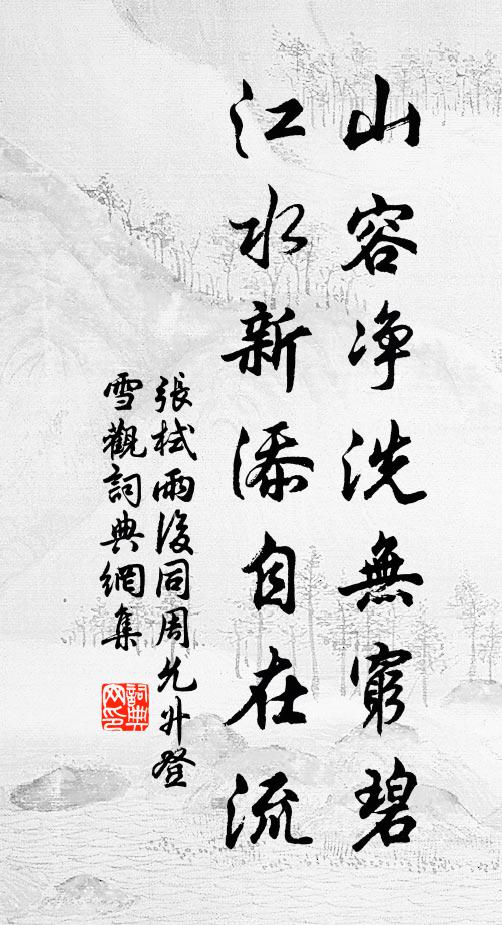 山容净洗無窮碧
江水新添自在流
張栻雨後同周允升登
雪觀詞典網集
詞典网印